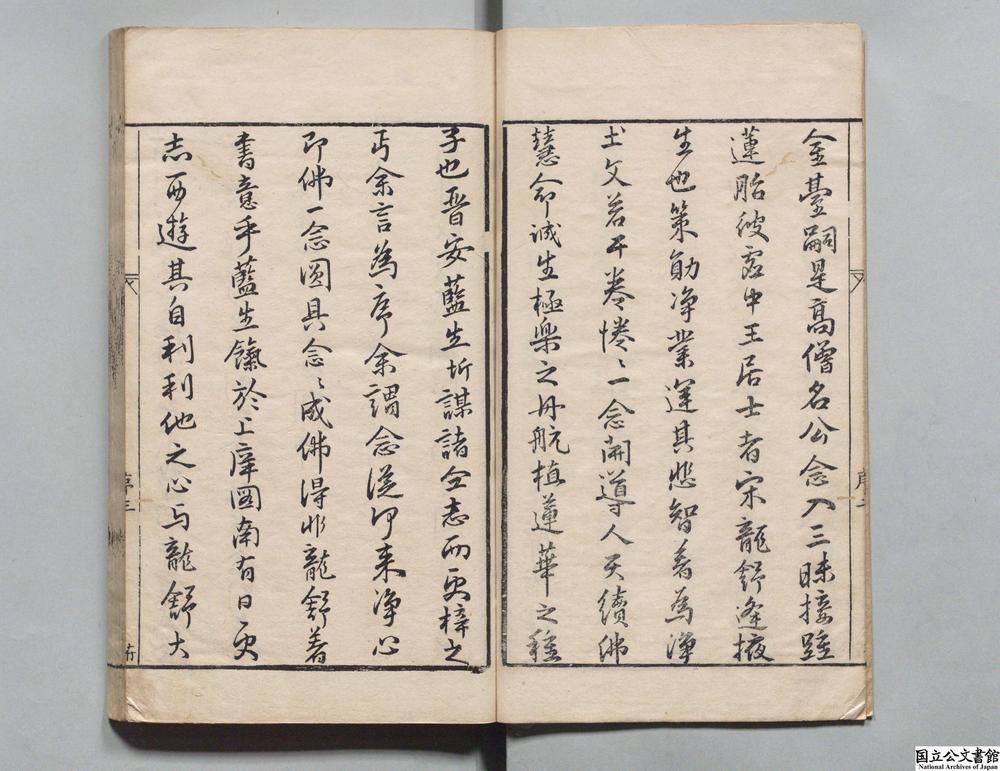 金臺嗣是高僧名公念入三昧接踵
蓮胎彼虛中王居士者宋龍舒逢掖
生也策勛淨業運其悲智著為淨
土文若干卷惓〻一念開導人天續佛
慧命誠生極樂之舟航植蓮華之種
子也晉安藍生圻謀諸仝志而更梓之
丐余言為序余謂念從何來淨心
即佛一念圓具念〻成佛得非龍舒著
書意乎藍生餼於上庠圖南有日更
志西遊其自利利他之心与龍舒大
序二
序三
国立公文書館
National Archives of Japan